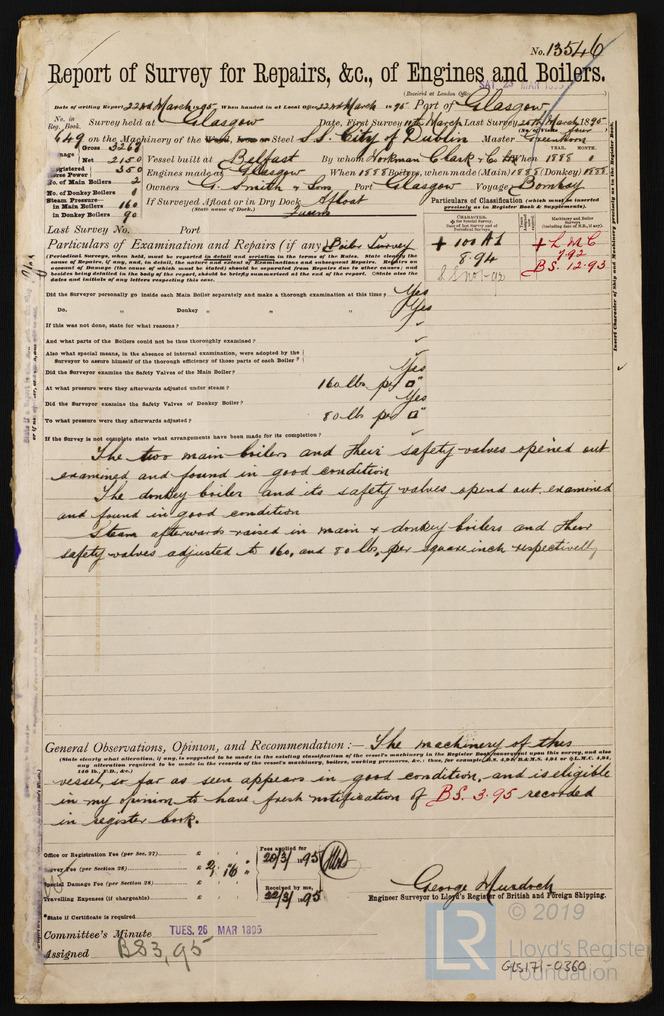 No. 13546
Report of Survey for Repairs, &c., of Engines and Boilers.
(Received at London Office
Date of writing Report 22nd March 1895 When handed in at Local Office 22nd March 1895 Port of Glasgow
No. in Reg. Book. Survey held at Glasgow Date, First Survey March Last Survey 20th March 1895
(No. of Visits four
649 on the Machinery of the Wood, Iron or Steel S.S. City of Dublin Master
Gross 3267
Net 2150 Vessel built at Belfast By whom Workman Clark & Co Ld When 1888
YEAR. MONTH.
Registered Horse Power 350 Engines made at Glasgow When 1888 Boilers, when made (Main) 1888 (Donkey) 1888
No. of Main Boilers 2
No. of Donkey Boilers Owners G. Smith & Sons Port Glasgow Voyage Bombay
Steam Pressure in Main Boilers 160 If Surveyed Afloat or in Dry Dock Afloat
in Donkey Boilers 90 (State name of Dock.) Queens
Particulars of Classification (which must be inserted precisely as in Register Book & Supplements).
Last Survey No. Port
CHARACTER.
Machinery and Boiler Surveys
+ 100 A1
8.94
+ L.M.C.
7.92
B.S. 12.93
Particulars of Examination and Repairs (if any) Boiler Survey
(Periodical Surveys, when held, must be reported in detail and seriatim in the terms of the Rules. State clearly the cause of Repairs, if any, and, in detail, the nature and extent of Examinations and subsequent Repairs. Repairs on account of Damage (the cause of which must be stated) should be separated from Repairs due to other causes; and besides being detailed in the body of the report, should be briefly summarised at the end of the report. State also the dates and initials of any letters respecting this case.
Did the Surveyor personally go inside each Main Boiler separately and make a thorough examination at this time? Yes
Do. Donkey " " " " Yes
If this was not done, state for what reasons? "
And what parts of the Boilers could not be thus thoroughly examined?
Also what special means, in the absence of internal examination, were adopted by the Surveyor to assure himself of the thorough efficiency of those parts of each Boiler?
Did the Surveyor examine the Safety Valves of the Main Boiler? Yes
At what pressure were they afterwards adjusted under steam? 160 lbs per □"
Did the Surveyor examine the Safety Valves of Donkey Boiler? Yes
To what pressure were they afterwards adjusted? 80 lbs per □"
If the Survey is not complete state what arrangements have been made for its completion?
The two main boilers and their safety-valves opened out
examined and found in good condition
The donkey boiler and its safety-valves opend out examined
and found in good condition
Steam afterwards raised in main & donkey boilers and their
safety-valves adjusted to 160, and 80 lbs, per square inch respectively
General Observations, Opinion, and Recommendation :— The machinery of this
(State clearly what alteration, if any, is suggested to be made in the existing classification of the vessel's machinery in the Register Book, consequent upon this survey, and also any alteration required to be made in the records of the vessel's machinery, boilers, working pressures, &c.; thus, for example, B.S. 4,94, B.&M.S. 4,94 or L.M.C. 4,94, 140 lb., F.D., &c.)
vessel, so far as seen appears in good condition, and is eligible
in my opinion to have fresh notification of BS. 3.95 recorded
in register book.
Office or Registration Fee (per Sec. 27) £
Survey Fee (per Section 28) £ 2 . 16 "
Special Damage Fee (per Section 28) £
Travelling Expenses (if chargeable) £
Fees applied for
20/3/1895
Received by me,
22/3/1895
George Murdoch
Engineer Surveyor to Lloyd's Register of British and Foreign Shipping.
State if Certificate is required
Committee's Minute TUES. 26 MAR 1895
Assigned BS 3,95
© 2019
LR
Lloyd's Register
Foundation
GLS171-0360